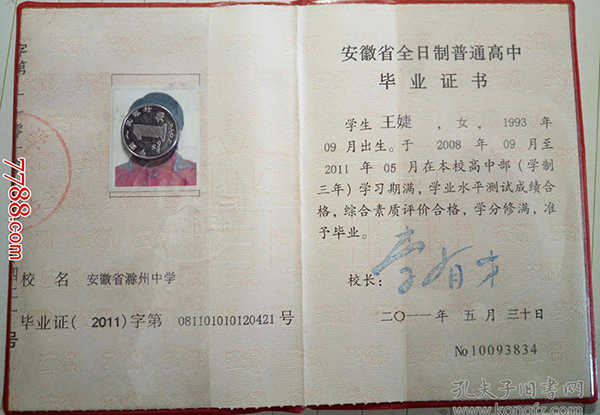 7788.com
校 名 安徽省滁州中学
毕业证( 2011 )字第 081101010120421 号
安徽省全日制普通高中
毕 业 证 书
学生 王婕 ，女，1993 年
09 月出生。于 2008 年 09 月至
2011 年 05 月在本校高中部（学制
三年）学习期满，学业水平测试成绩合
格，综合素质评价合格，学分修满，准
予毕业。
校长：
二〇一一年 五 月 三十日
No 10093834
孔夫子旧书网